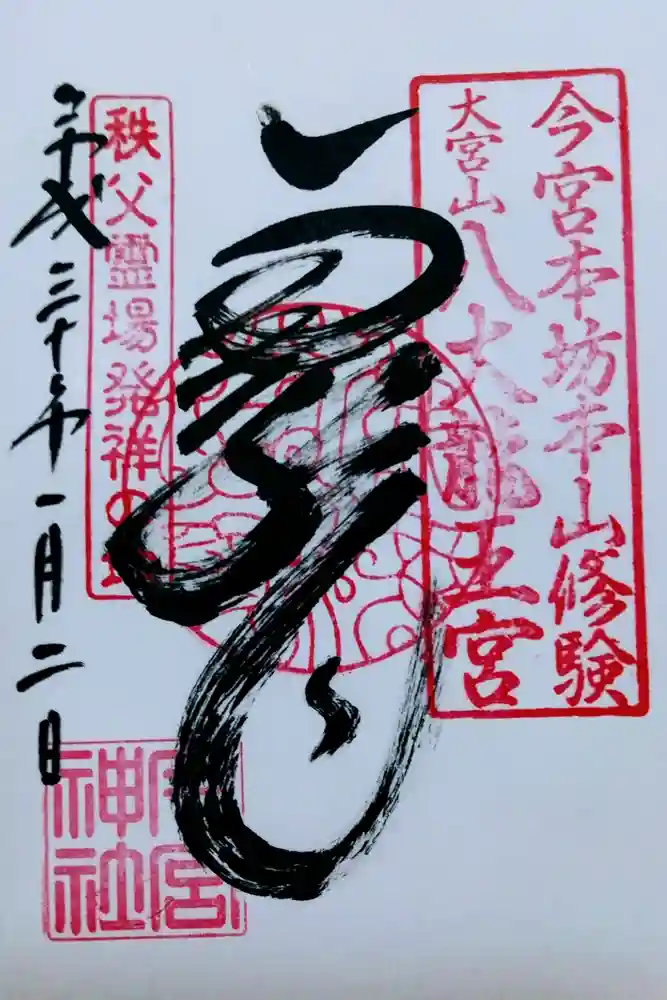 今宮本坊本山修験
大宮山八大龍王宮
龍
秩父霊場発祥の地
平成三十年一月二日
今宮
神社